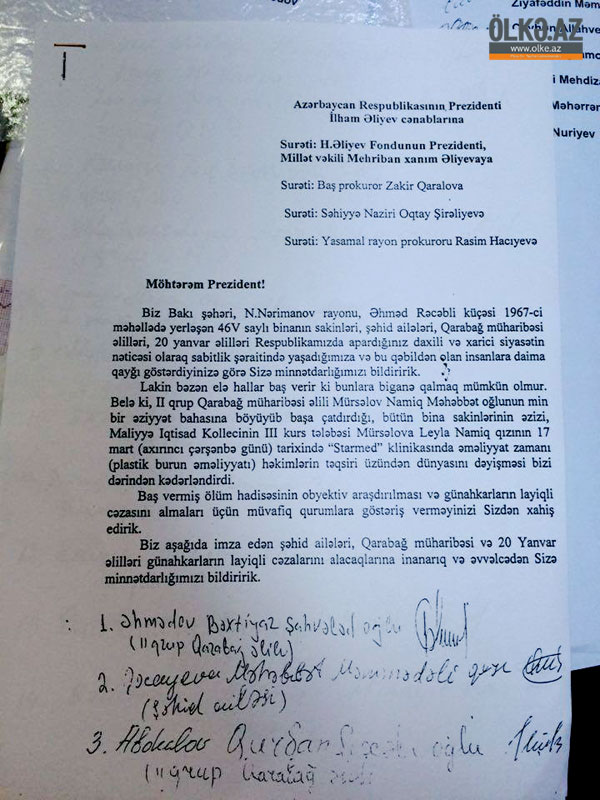 ÖLKƏ.AZ
www.olke.az
Ziyafəddin Məm
Allahve
i Mehdiza
Məhərrər
Nuriyev
Azərbaycan Respublikasının Prezidenti
İlham Əliyev cənablarına
Surəti: H.Əliyev Fondunun Prezidenti,
Millət vəkili Mehriban xanım Əliyevaya
Surəti: Baş prokuror Zakir Qaralova
Surəti: Səhiyyə Naziri Oqtay Şirəliyevə
Surəti: Yasamal rayon prokuroru Rasim Hacıyevə
Möhtərəm Prezident!
Biz Bakı şəhəri, N.Nərimanov rayonu, Əhməd Rəcəbli küçəsi 1967-ci
məhəllədə yerləşən 46V saylı binanın sakinləri, şəhid ailələri, Qarabağ müharibəsi
əlilləri, 20 yanvar əlilləri Respublikamızda apardığınız daxili və xarici siyasətin
nəticəsi olaraq sabitlik şəraitində yaşadığımıza və bu qəbildən olan insanlara daima
qayğı göstərdiyinizə görə Sizə minnətdarlığımızı bildiririk.
Lakin bəzən elə hallar baş verir ki bunlara biganə qalmaq mümkün olmur.
Belə ki, II qrup Qarabağ müharibəsi əlili Mürsəlov Namiq Məhəbbət oğlunun min
bir əziyyət bahasına böyüyüb başa çatdırdığı, bütün bina sakinlərinin əzizi,
Maliyyə İqtisad Kollecinin III kurs tələbəsi Mürsəlova Leyla Namiq qızının 17
mart (axırıncı çərşənbə günü) tarixində “Starmed” klinikasında əməliyyat zamanı
(plastik burun əməliyyatı) həkimlərin təqsiri üzündən dünyasını dəyişməsi bizi
dərindən kədərləndirdi.
Baş vermiş ölüm hadisəsinin obyektiv araşdırılması və günahkarların layiqli
cəzasını almaları üçün müvafiq qurumlara göstəriş verməyinizi Sizdən xahiş
edirik.
Biz aşağıda imza edən şəhid ailələri, Qarabağ müharibəsi və 20 Yanvar
əlilləri günahkarların layiqli cəzalarını alacaqlarına inanarıq və əvvəlcədən Sizə
minnətdarlığımızı bildiririk.
1. Əhmədov Bəxtiyar Şahvələd oğlu
(II qrup Qarabağ əlili)
2. Məhəbbət Məmmədəli qızı
(Şəhid ailəsi)
3. Abdulov Qurban oğlu
(II qrup Qarabağ